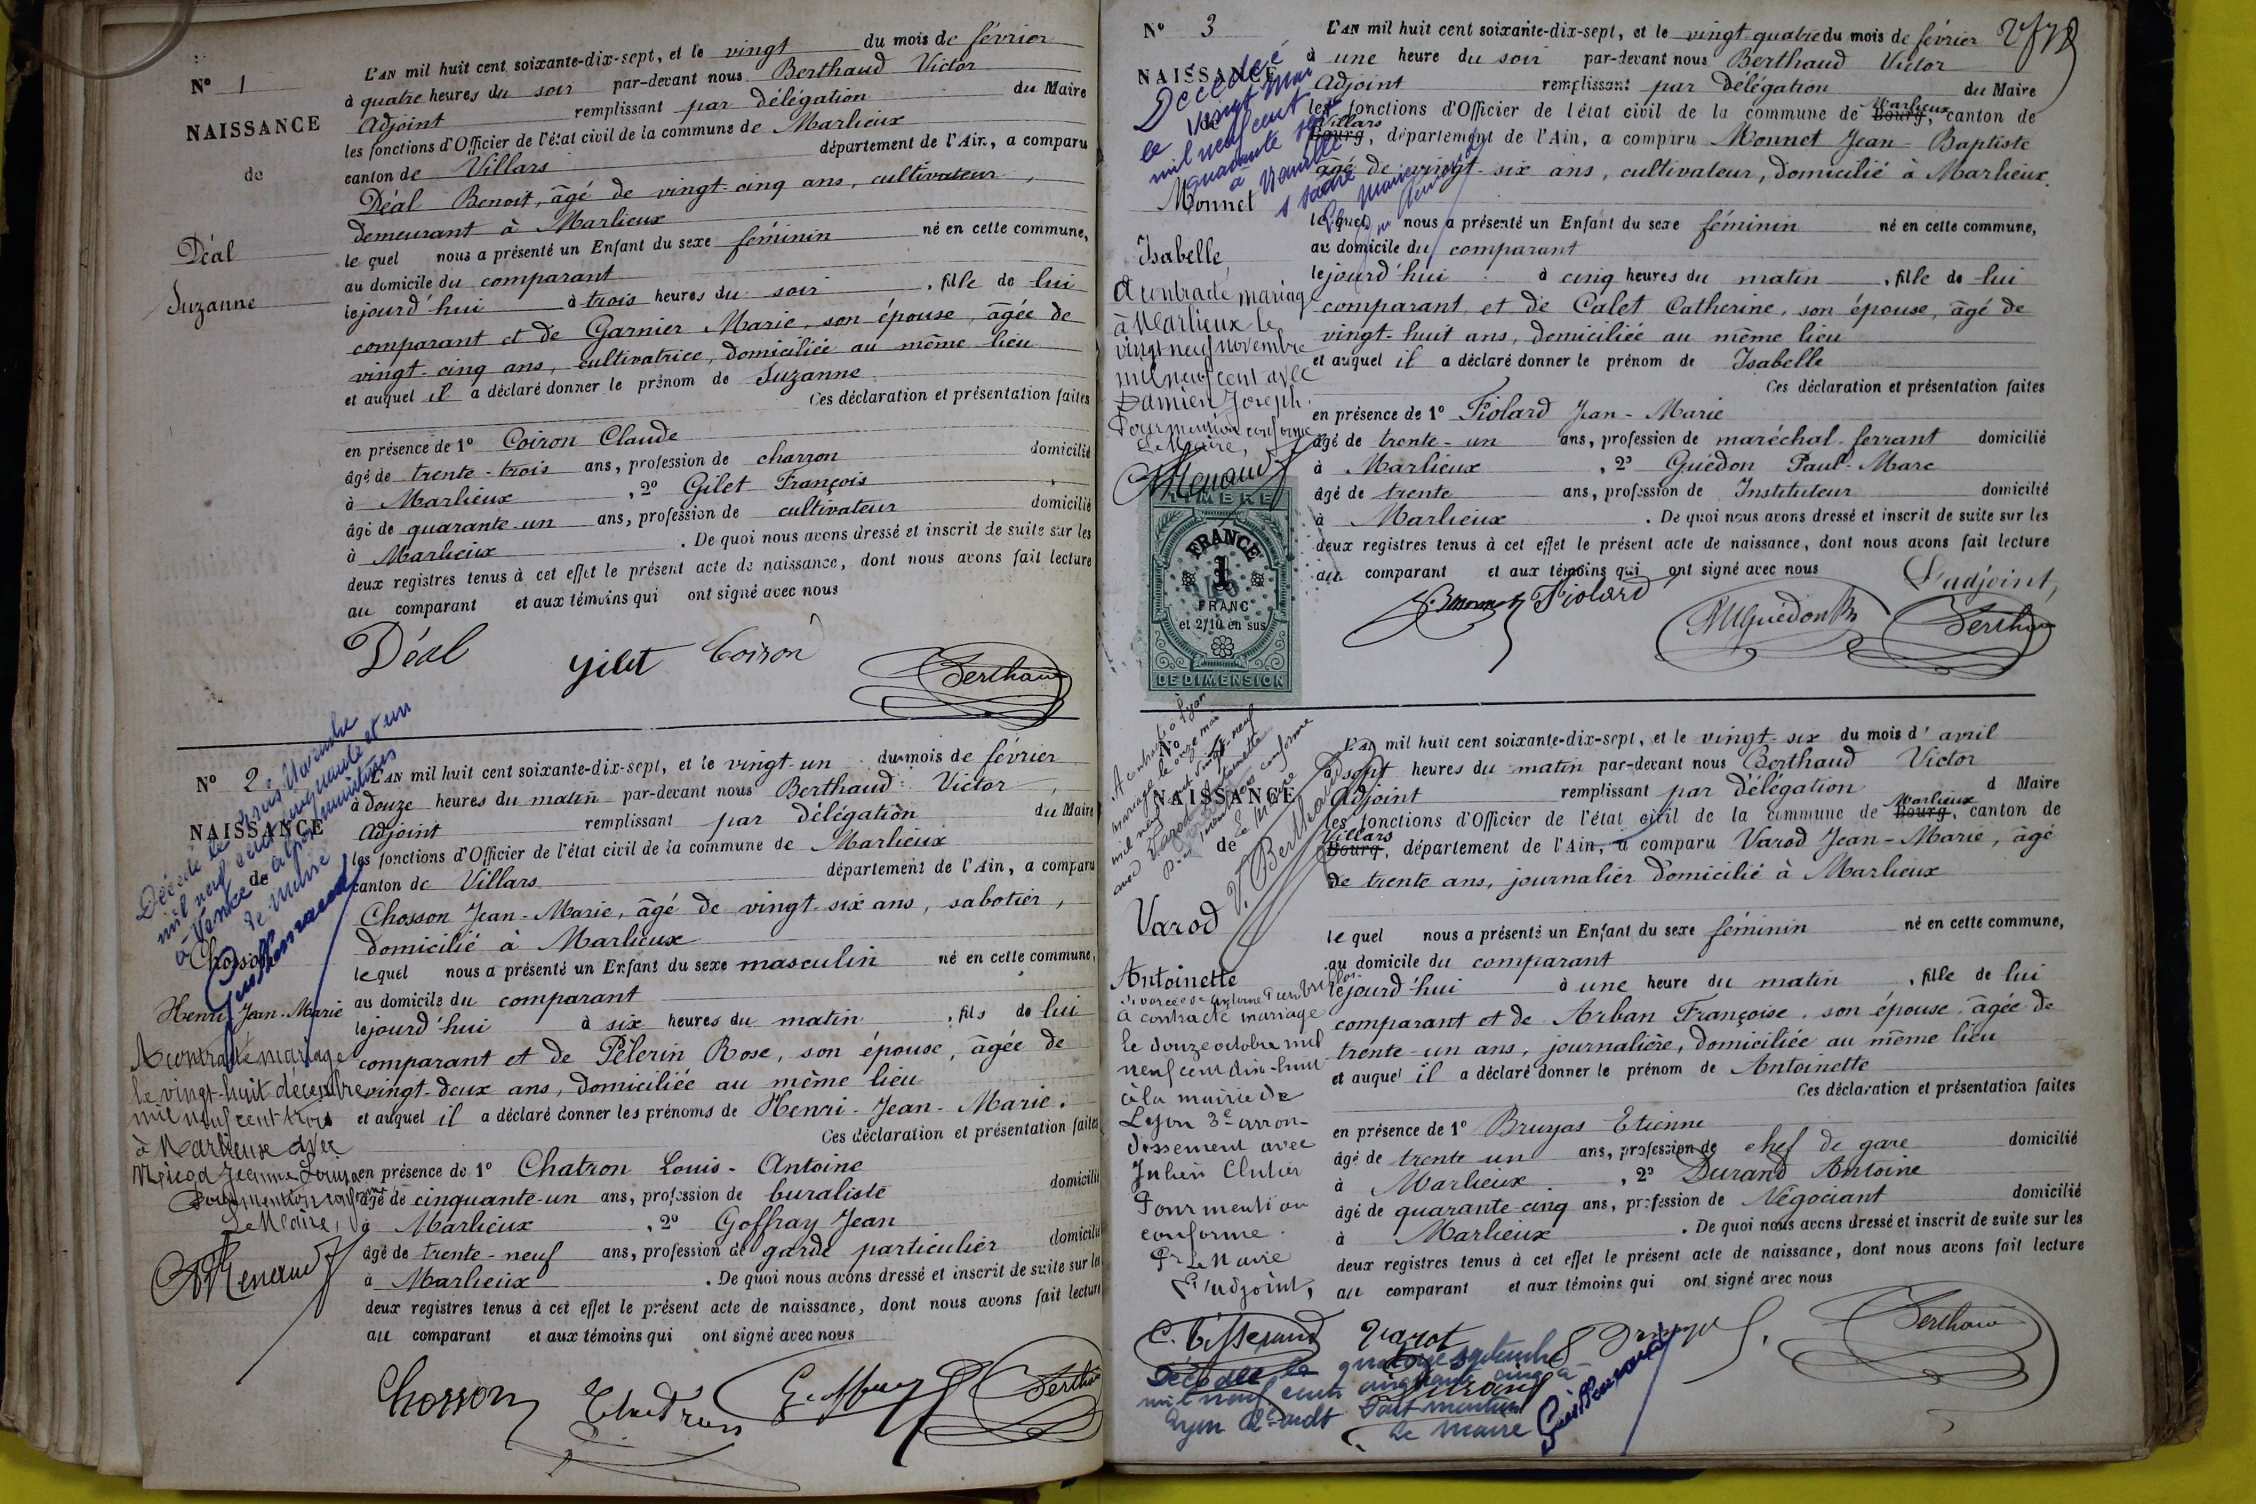 N° 1
NAISSANCE
de
Déal
Suzanne
L'AN mil huit cent soixante-dix-sept, et le vingt du mois de février
à quatre heures du soir par-devant nous Berthaud Victor
Adjoint remplissant par délégation du Maire
les fonctions d'Officier de l'état civil de la commune de Marlieux
canton de Villars département de l'Ain, a comparu
Déal Benoit, âgé de vingt-cinq ans, cultivateur,
demeurant à Marlieux
le quel nous a présenté un Enfant du sexe féminin né en cette commune,
au domicile du comparant
le jourd'hui à trois heures du soir, fille de lui
comparant et de Garnier Marie, son épouse, âgée de
vingt-cinq ans, cultivatrice, domiciliée au même lieu
et auquel il a déclaré donner le prénom de Suzanne
Ces déclaration et présentation faites
en présence de 1° Coiron Claude
âgé de trente-trois ans, profession de charron domicilié
à Marlieux, 2° Gilet François
âgé de quarante-un ans, profession de cultivateur domicilié
à Marlieux. De quoi nous avons dressé et inscrit de suite sur les
deux registres tenus à cet effet le présent acte de naissance, dont nous avons fait lecture
au comparant et aux témoins qui ont signé avec nous
Déal Gilet Coiron Berthaud
N° 2
NAISSANCE
de
Chosson
Henri Jean-Marie
Décédé le
mil neuf cent cinquante et un
à Vence
le Maire
A contracté mariage
le vingt-huit décembre
mil neuf cent trois
à Marlieux avec
Jeanne Louise
Pour mention conforme
Le Maire,
L'AN mil huit cent soixante-dix-sept, et le vingt-un du mois de février
à douze heures du matin par-devant nous Berthaud Victor,
Adjoint remplissant par délégation du Maire
les fonctions d'Officier de l'état civil de la commune de Marlieux
canton de Villars département de l'Ain, a comparu
Chosson Jean-Marie, âgé de vingt-six ans, sabotier,
domicilié à Marlieux
le quel nous a présenté un Enfant du sexe masculin né en cette commune,
au domicile du comparant
le jourd'hui à six heures du matin, fils de lui
comparant et de Pélerin Rose, son épouse, âgée de
vingt-deux ans, domiciliée au même lieu
et auquel il a déclaré donner les prénoms de Henri-Jean-Marie.
Ces déclaration et présentation faites
en présence de 1° Chatron Louis-Antoine
âgé de cinquante-un ans, profession de buraliste domicilié
à Marlieux, 2° Goffray Jean
âgé de trente-neuf ans, profession de garde particulier domicilié
à Marlieux. De quoi nous avons dressé et inscrit de suite sur les
deux registres tenus à cet effet le présent acte de naissance, dont nous avons fait lecture
au comparant et aux témoins qui ont signé avec nous
Chosson Chatron Goffray Berthaud
N° 3
NAISSANCE
Monnet
Isabelle
Décédée
le vingt mai
mil neuf cent
quarante sept
à
A contracté mariage
à Marlieux le
vingt neuf novembre
mil neuf cent avec
Damien Joseph.
Pour mention conforme
Le Maire,
TIMBRE
FRANCE
1
FRANC
et 2/10 en sus
DE DIMENSION
L'AN mil huit cent soixante-dix-sept, et le vingt quatre du mois de février
à une heure du soir par-devant nous Berthaud Victor
Adjoint remplissant par délégation du Maire
les fonctions d'Officier de l'état civil de la commune de Bourg, Marlieux canton de
Bourg, Villars département de l'Ain, a comparu Monnet Jean-Baptiste
âgé de vingt-six ans, cultivateur, domicilié à Marlieux.
lequel nous a présenté un Enfant du sexe féminin né en cette commune,
au domicile du comparant
le jourd'hui à cinq heures du matin, fille de lui
comparant et de Calet Catherine, son épouse, âgé de
vingt-huit ans, demiciliée au même lieu
et auquel il a déclaré donner le prénom de Isabelle
Ces déclaration et présentation faites
en présence de 1° Fiolard Jean-Marie
âgé de trente-un ans, profession de maréchal-ferrant domicilié
à Marlieux, 2° Guédon Paul-Marc
âgé de trente ans, profession de Instituteur domicilié
à Marlieux. De quoi nous avons dressé et inscrit de suite sur les
deux registres tenus à cet effet le présent acte de naissance, dont nous avons fait lecture
au comparant et aux témoins qui ont signé avec nous
L'adjoint,
Fiolard Guédon Berthaud
N°
NAISSANCE
de
Varod
Antoinette
A contracté à Lyon
mariage le onze mai
A contracté mariage
le douze octobre mil
neuf cent dix-huit
à la mairie de
Lyon 3e arron-
dissement avec
Julien
Pour mention
conforme.
Pr Le Maire
L'adjoint,
L'AN mil huit cent soixante-dix-sept, et le vingt-six du mois d'avril
à sept heures du matin par-devant nous Berthaud Victor
Adjoint remplissant par délégation d Maire
les fonctions d'Officier de l'état civil de la commune de Bourg, Marlieux canton de
Bourg, Villars département de l'Ain, a comparu Varod Jean-Marie, âgé
de trente ans, journalier domicilié à Marlieux
le quel nous a présenté un Enfant du sexe féminin né en cette commune,
au domicile du comparant
le jourd'hui à une heure du matin, fille de lui
comparant et de Arban Françoise, son épouse, âgée de
trente-un ans, journalière, domiciliée au même lieu
et auquel il a déclaré donner le prénom de Antoinette
Ces déclaration et présentation faites
en présence de 1° Bruyas Etienne
âgé de trente un ans, profession de chef de gare domicilié
à Marlieux, 2° Durand Antoine
âgé de quarante-cinq ans, profession de Négociant domicilié
à Marlieux. De quoi nous avons dressé et inscrit de suite sur les
deux registres tenus à cet effet le présent acte de naissance, dont nous avons fait lecture
au comparant et aux témoins qui ont signé avec nous
Varot Berthaud
Durand
Décédée le quatorze septembre
mil neuf cent cinquante cinq à
Lyon 2e ardt
Le Maire